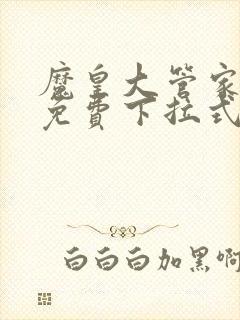 魔皇大管家
免費下拉式
白白白加黑啊